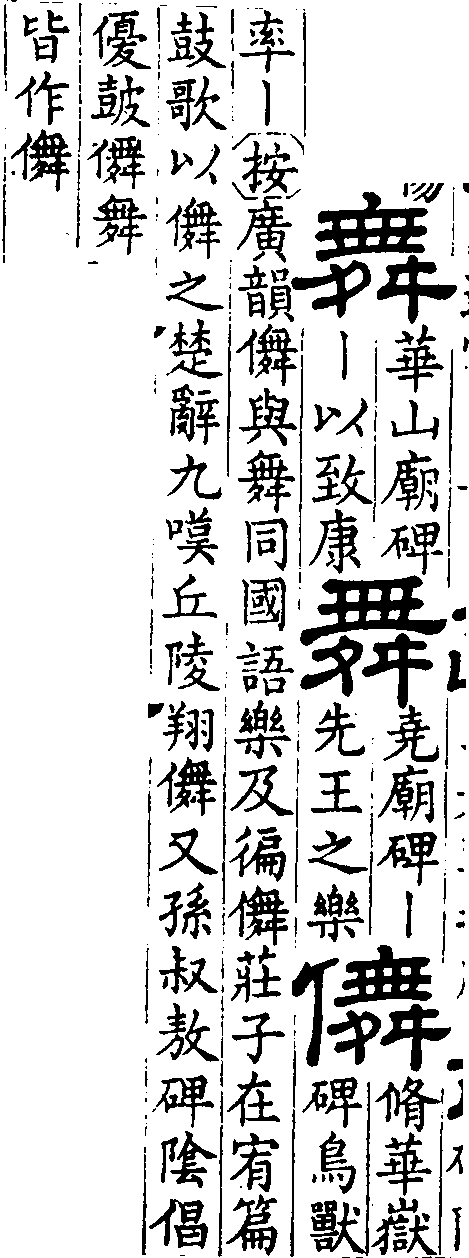 舞華山廟碑丨以致康舞堯廟碑丨先王之樂儛脩華嶽碑鳥獸
率丨按廣韻儛與舞同國語樂及徧儛莊子在宥篇
鼓歌以儛之楚辭九嘆丘陵翔儛又孫叔敖碑陰倡
優皷儛舞
皆作儛